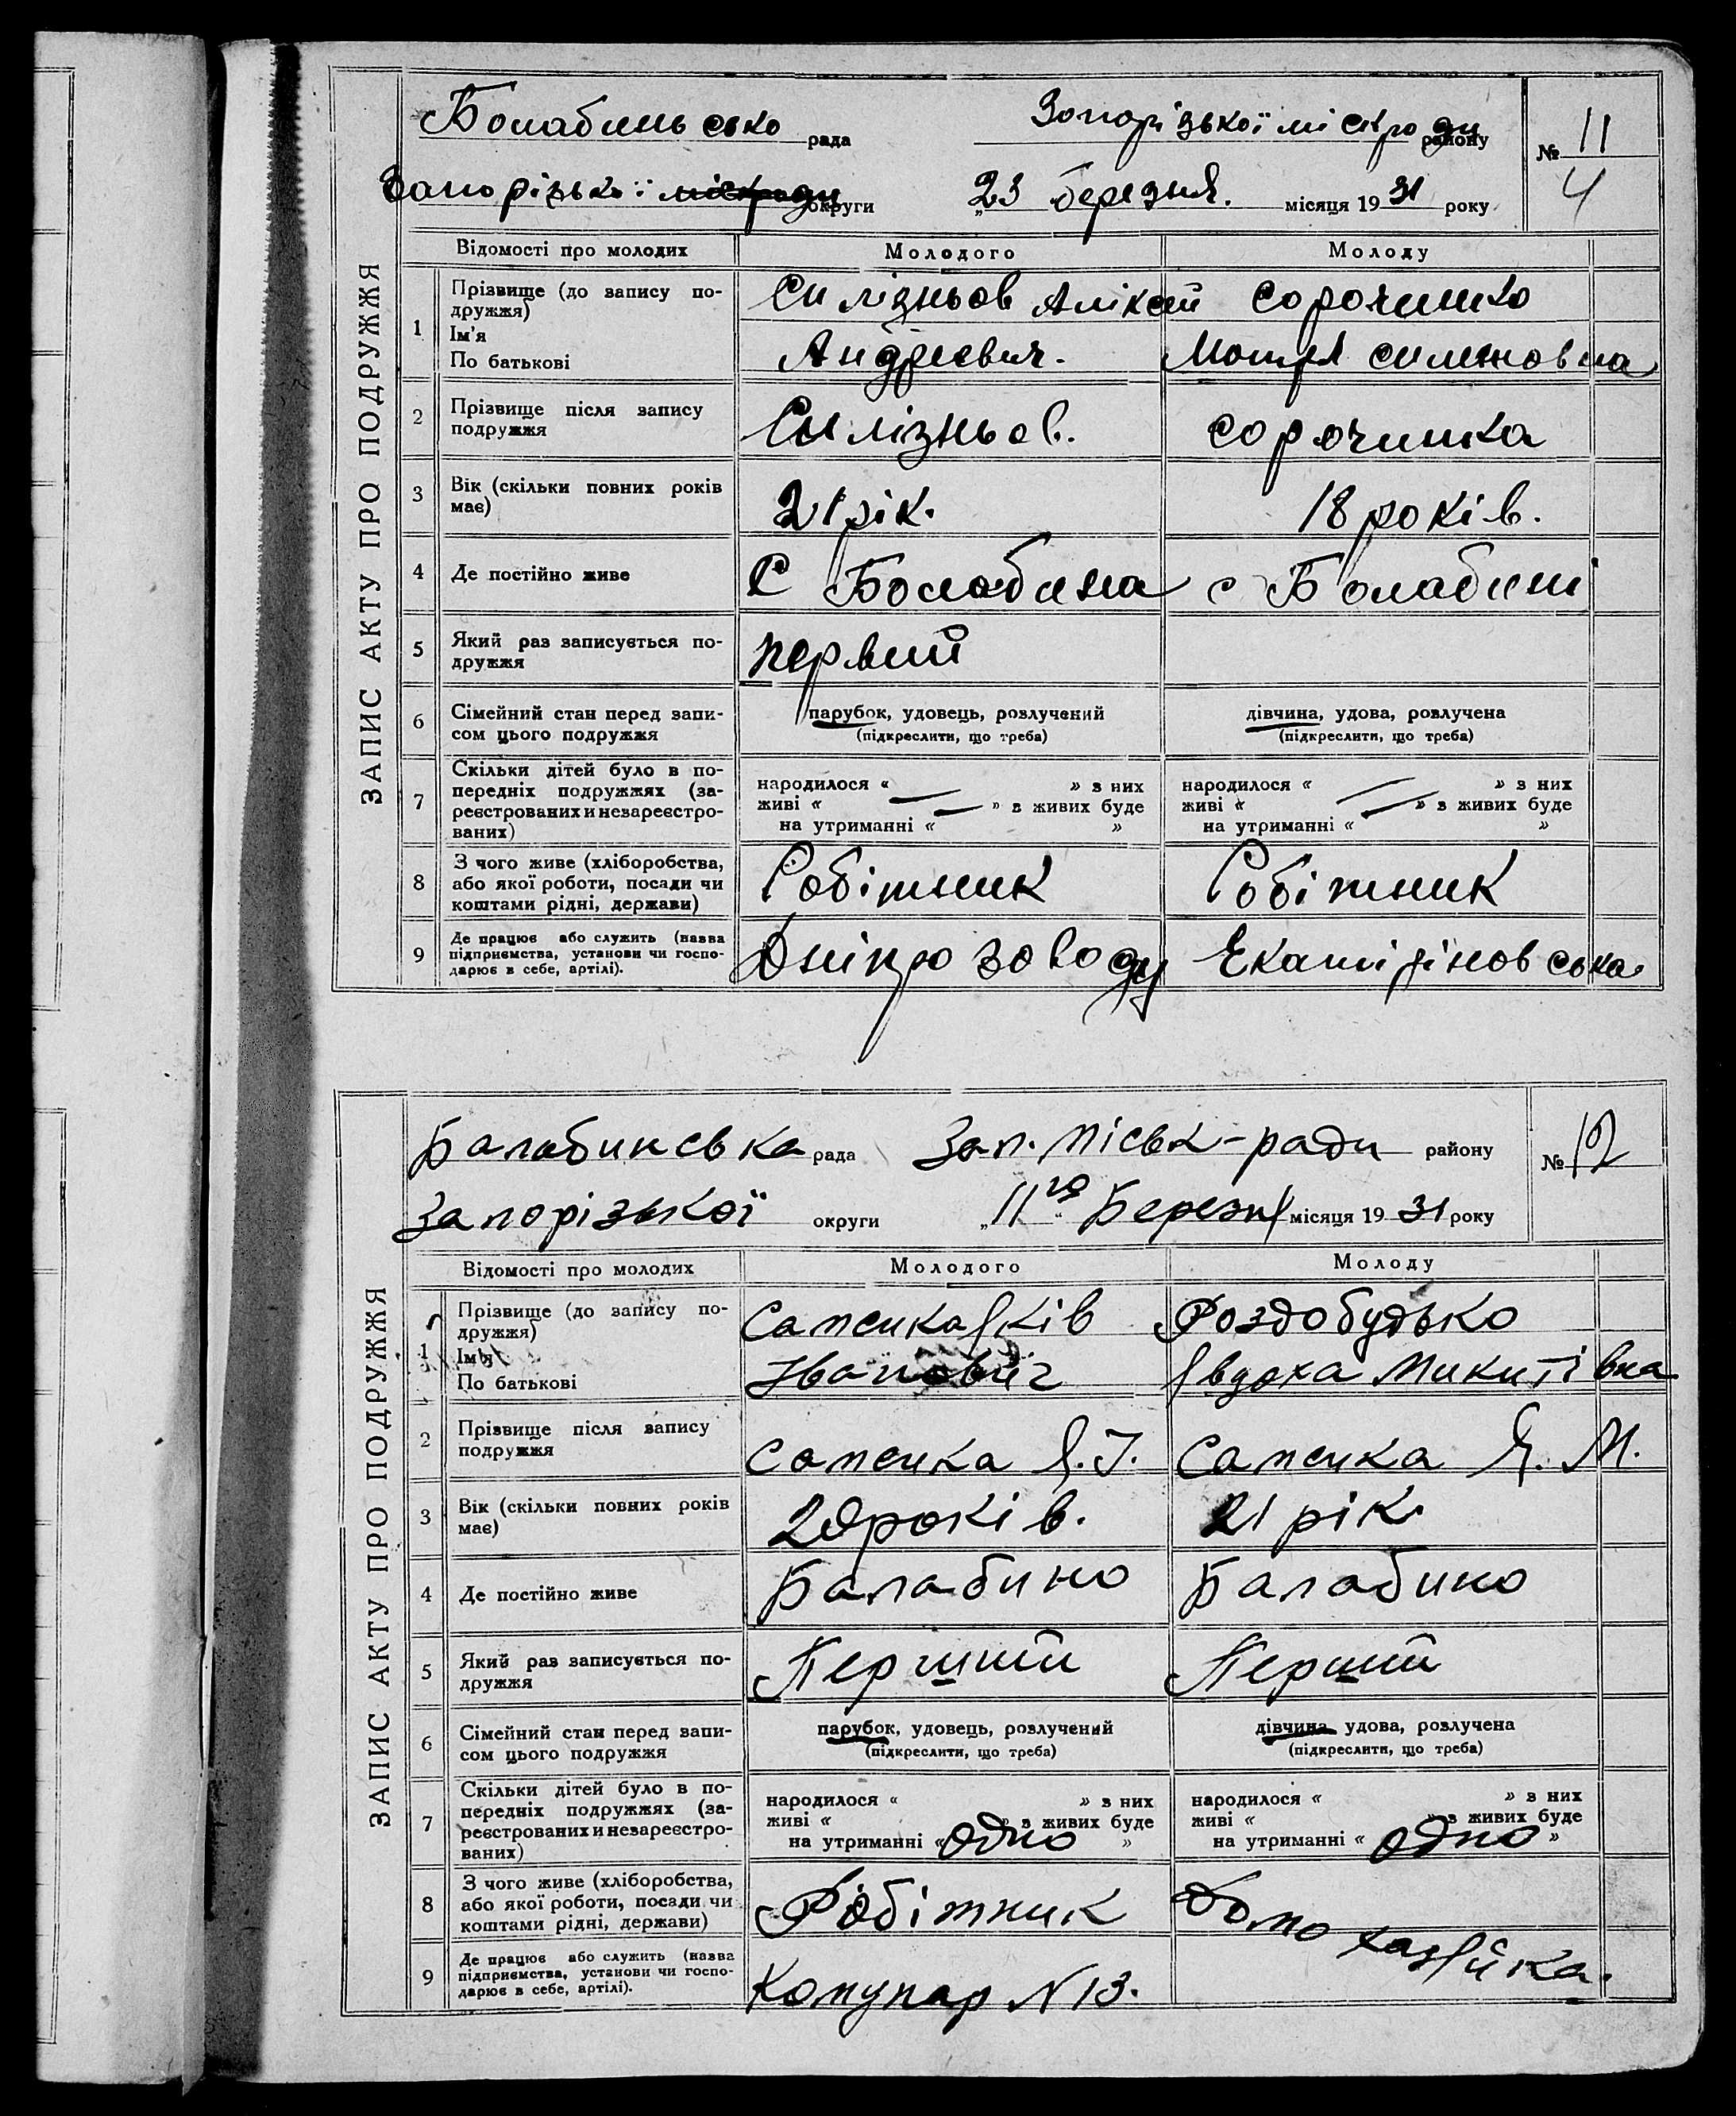 ЗАПИС АКТУ ПРО ПОДРУЖЖЯ
Болабинсько рада Запорізької міскради району № 11
Запорізької міскради округи „23 березня. місяця 1931 року 4
Відомості про молодих Молодого Молоду
1 Прізвище (до запису по-
дружжя)
Ім'я
По батькові
Силізньов Аліксей Сорочинко
Андреевич. Мотря Симоновна
2 Прізвище після запису
подружжя
Силізньов. Сорочинка
3 Вік (скільки повних років
має)
21 рік. 18 років.
4 Де постійно живе С Болобина с Болабині
5 Який раз записується по-
дружжя
первий
6 Сімейний стан перед запи-
сом цього подружжя
парубок, удовець, розлучений дівчина, удова, розлучена
(підкреслити, що треба) (підкреслити, що треба)
7 Скільки дітей було в по-
передніх подружжях (за-
реєстрованих и незареєстро-
ваних)
народилося « » з них народилося « » з них
живі « — » з живих буде живі « — » з живих буде
на утриманні « — » на утриманні « — »
8 З чого живе (хліборобства,
або якої роботи, посади чи
коштами рідні, держави)
Робітник Робітник
9 Де працює або служить (назва
підприємства, установи чи госпо-
дарює в себе, артілі).
Дніпро заводу Екатирінов ська.
ЗАПИС АКТУ ПРО ПОДРУЖЖЯ
Балабинська рада Зап. міськ-ради району № 12
Запорізької округи „11го Березня місяця 1931 року
Відомості про молодих Молодого Молоду
1 Прізвище (до запису по-
дружжя)
Ім'я
По батькові
Сапсика Яків Роздобудько
Іванович Явдоха Микитівна
2 Прізвище після запису
подружжя
Сапсика Я. І. Сапсика Я. М.
3 Вік (скільки повних років
має)
20 років. 21 рік.
4 Де постійно живе Балабино Балабино
5 Який раз записується по-
дружжя
Перший Перший
6 Сімейний стан перед запи-
сом цього подружжя
парубок, удовець, розлучений дівчина, удова, розлучена
(підкреслити, що треба) (підкреслити, що треба)
7 Скільки дітей було в по-
передніх подружжях (за-
реєстрованих и незареєстро-
ваних)
народилося « » з них народилося « » з них
живі « » з живих буде живі « » з живих буде
на утриманні « одно » на утриманні « одно »
8 З чого живе (хліборобства,
або якої роботи, посади чи
коштами рідні, держави)
Робітник Домо хазяйка.
9 Де працює або служить (назва
підприємства, установи чи госпо-
дарює в себе, артілі).
Комунар N 13.